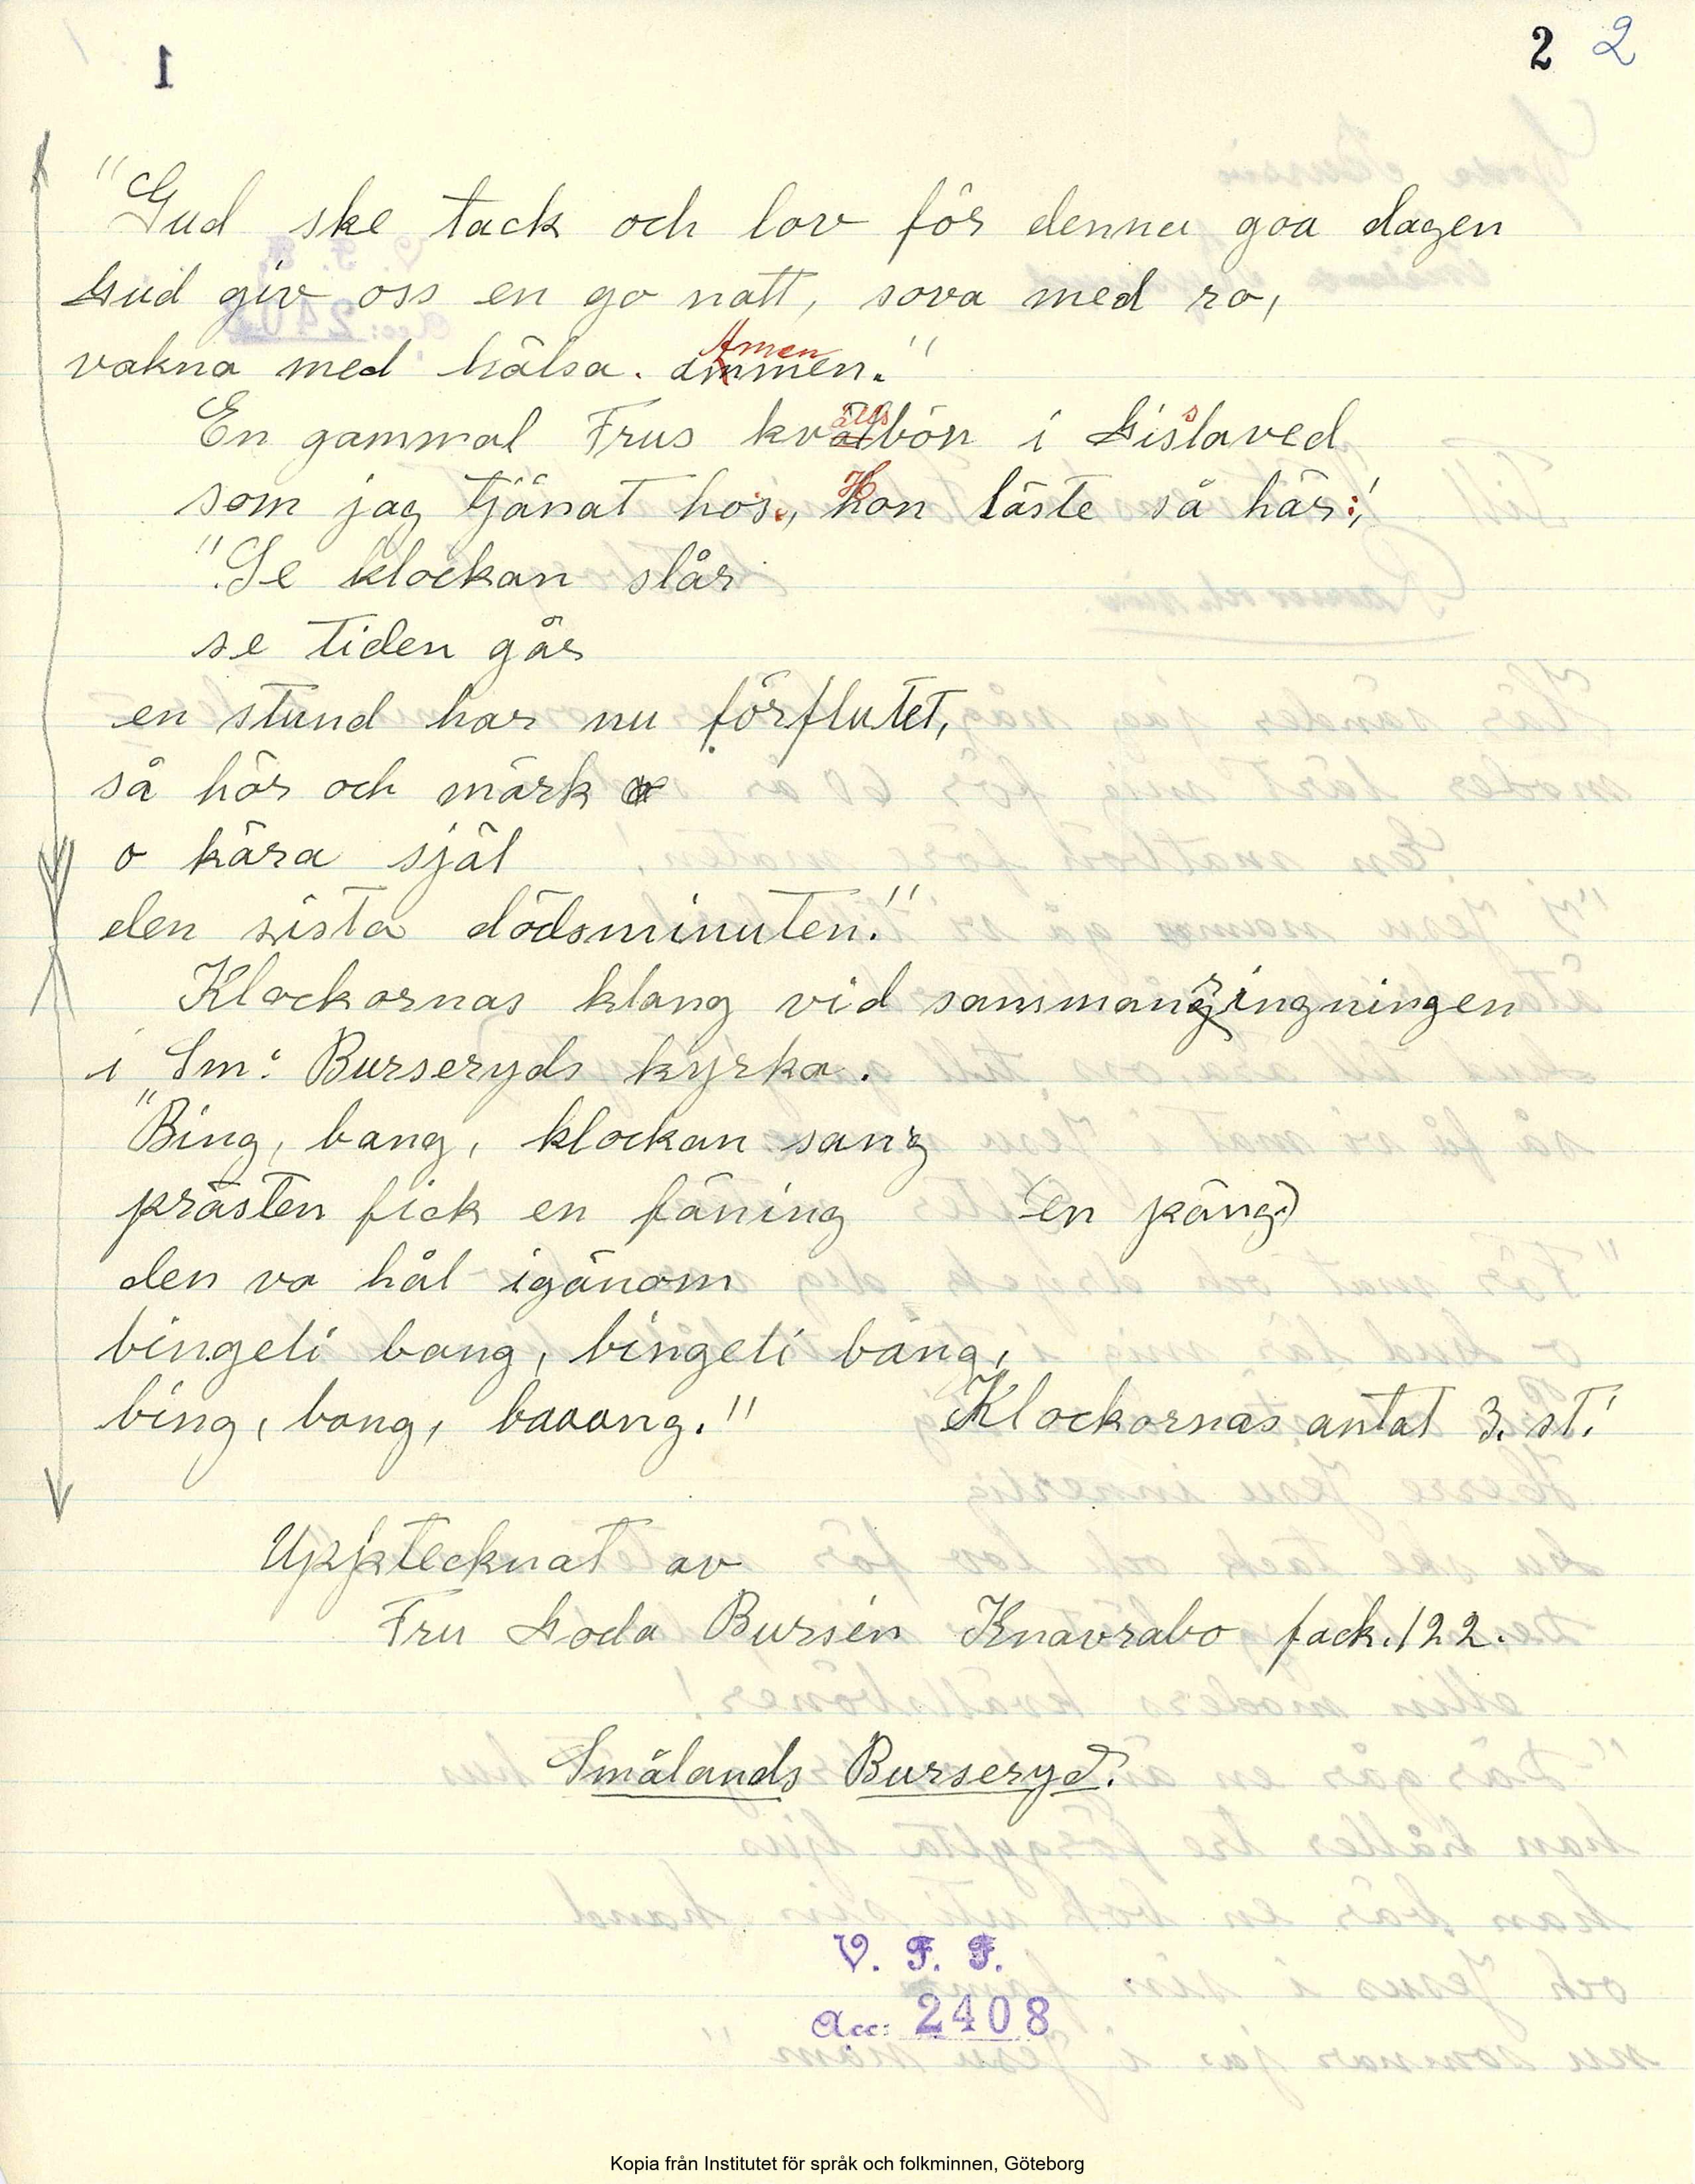 1
2 2
"Gud ske tack och lov för denna goa dagen
Gud giv oss en go natt, sova med ro,
Amen
vakna med hälsa. ammen."
älls
En gammal Frus kvälbön i Gislaved
som jag tjänat hos., Hon läste så här:,
"Se klockan slår
se tiden går
en stund har nu förflutet,
så hör och märk
o kära själ
den sista dödsminuten."
Klockornas klang vid sammanringningen
i Sm: Burseryds kyrka.
"Bing, bang, klockan sang
prästen fick en fäning (en päng)
den va hål igänom
bingeli bang, bingeli bang,
bing, bang, baaang." Klockornas antal 3. st.
Upptecknat av
Fru Goda Bursén Knavrabo fack. 122.
Smålands Burseryd.
V. F. F.
Acc: 2408
Kopia från Institutet för språk och folkminnen, Göteborg